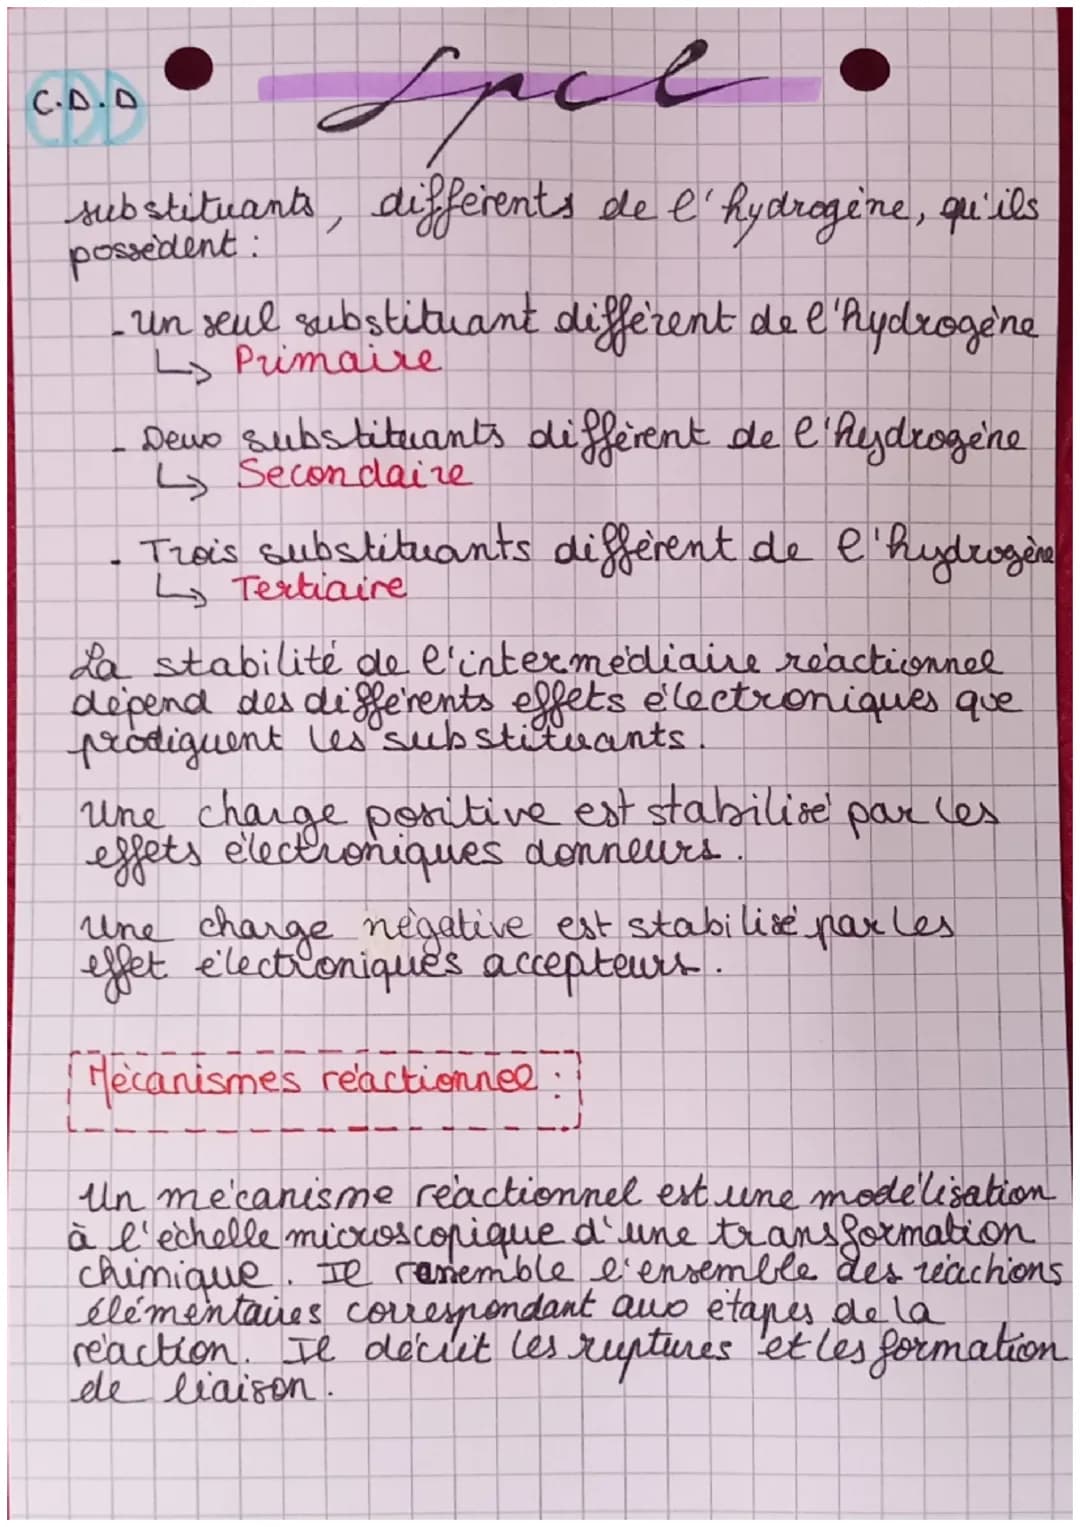 C.D.D
Spcl
substituants, différents de l'hydrogène, qu'ils
possèdent :
- Un seul substituant différent de l'hydrogène
↳ Primaire
- Deux substituants différent de l'hydrogène
↳ Secondaire
- Trois substituants différent de l'hydrogène
↳ Tertiaire
La stabilité de l'intermédiaire réactionnel
dépend des différents effets électroniques que
prodiguent les substituants.
Une charge positive est stabilisé par les
effets électroniques donneurs.
Une charge négative est stabilisé par les
effet électroniques accepteurs.
Mécanismes réactionnel :
Un mécanisme réactionnel est une modélisation
à l'échelle microscopique d'une transformation
chimique. Il rassemble l'ensemble des réactions
élémentaires correspondant aux étapes de la
réaction. Il décrit les ruptures et les formation
de liaison.